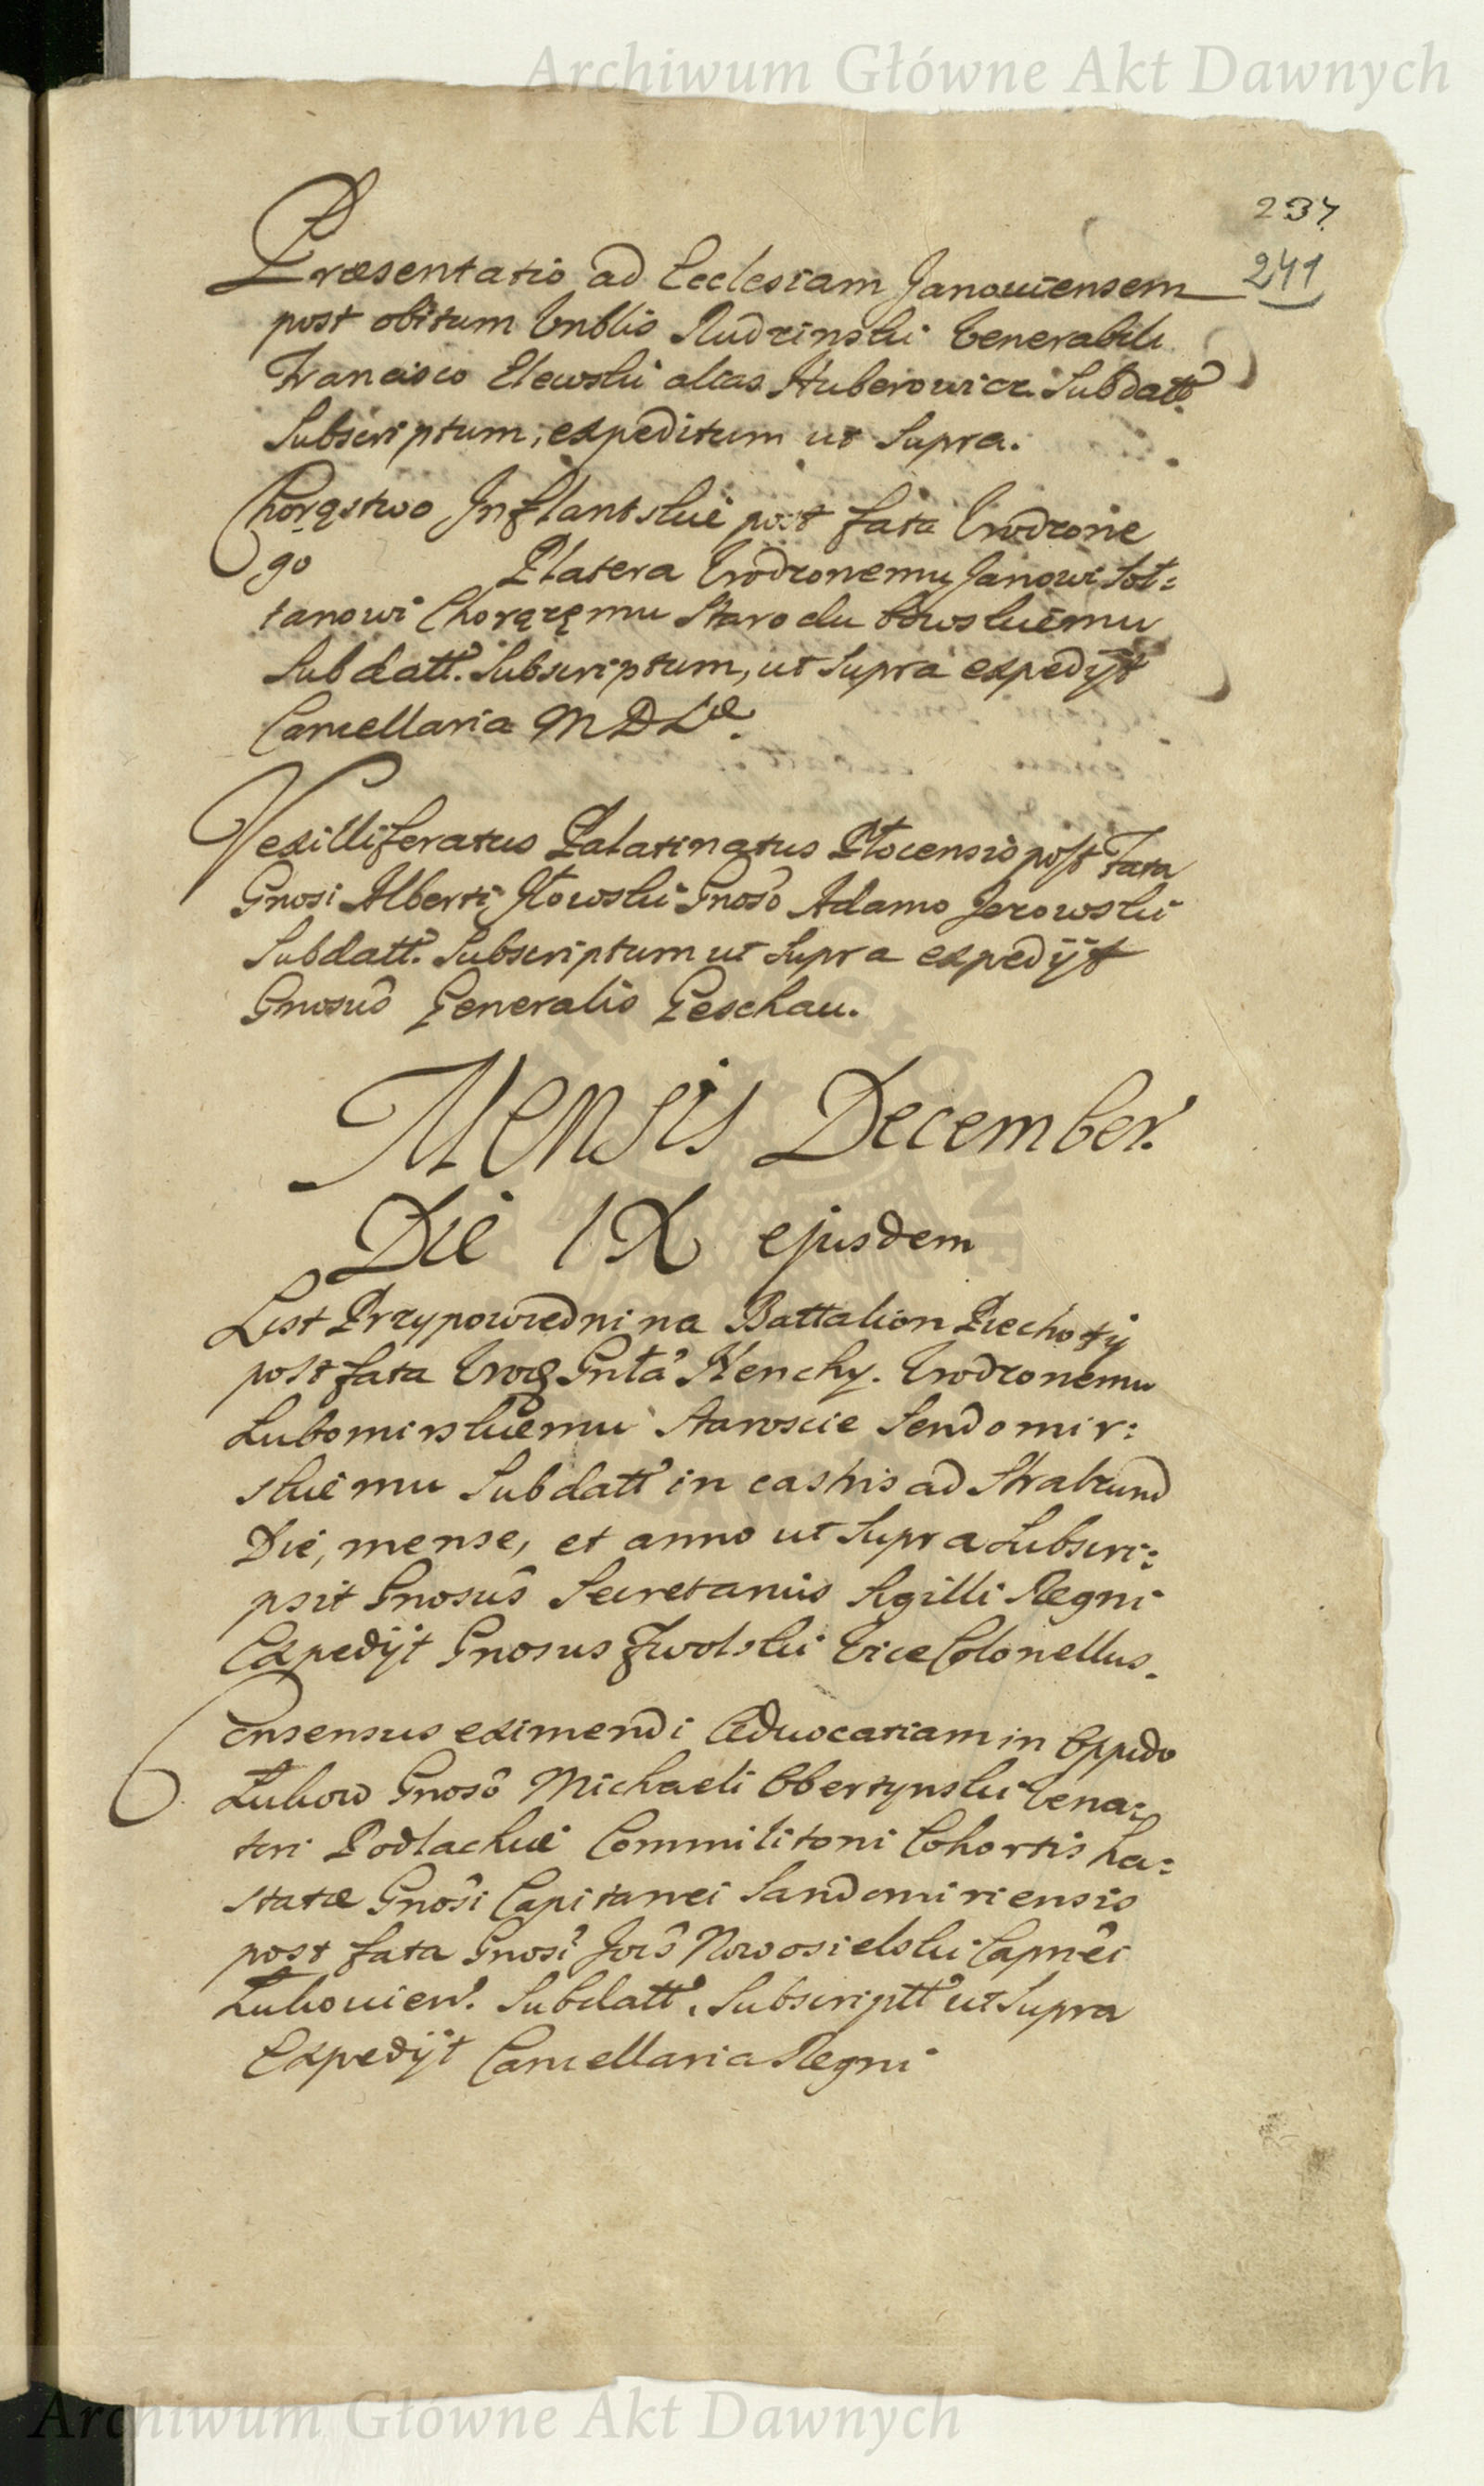 Archiwum Główne Akt Dawnych
237.
241
Præsentatio ad Ecclesiam Janoviensem
post obitum Vnblis Rudzinski Venerabili
Francisco Elewski alias Huberowicz. Subdatt.
Subscriptum, expeditum ut Supra.
Chorąstwo Inflantskie post fata Urodzone
go Platera Urodzonemu Janowi Soł:
tanowi Chorążęmu Starodubowskiemu
Subdatt. Subscriptum, ut Supra expedijt
Cancellaria M D Læ.
Vexilliferatus Palatinatus Płocensis post Fata
Gnosi Alberti Głowski Gnoso Adamo Jezowski
Subdatt. Subscriptum ut Supra expedijt
Gnosus Generalis Geschau.
Mensis December.
Die IX ejusdem
List Przypowiedni na Battalion Piechotÿ
post fata Uroꝗ Gnła Henchy. Urodzonemu
Lubomirskiemu Staroscie Sendomir:
skiemu Subdatt in castris ad Stralzund
Die, mense, et anno ut Supra Subscri:
psit Gnosus Secretarius Sigilli Regni
Expedijt Gnosus Zwolski Vice Colonellus.
Consensus eximendi Advocatiam in Oppido
Łukow Gnoso Michaeli Obertynski Vena:
tori Podlachiæ Commilitoni Cohortis ha:
statæ Gnosi Capitanei Sandomiriensis
post fata Gnosi Jois Nowosielski Capnei
Łukovien. Subdatt. Subscriptt ut Supra
Expedijt Cancellaria Regni
Archiwum Główne Akt Dawnych